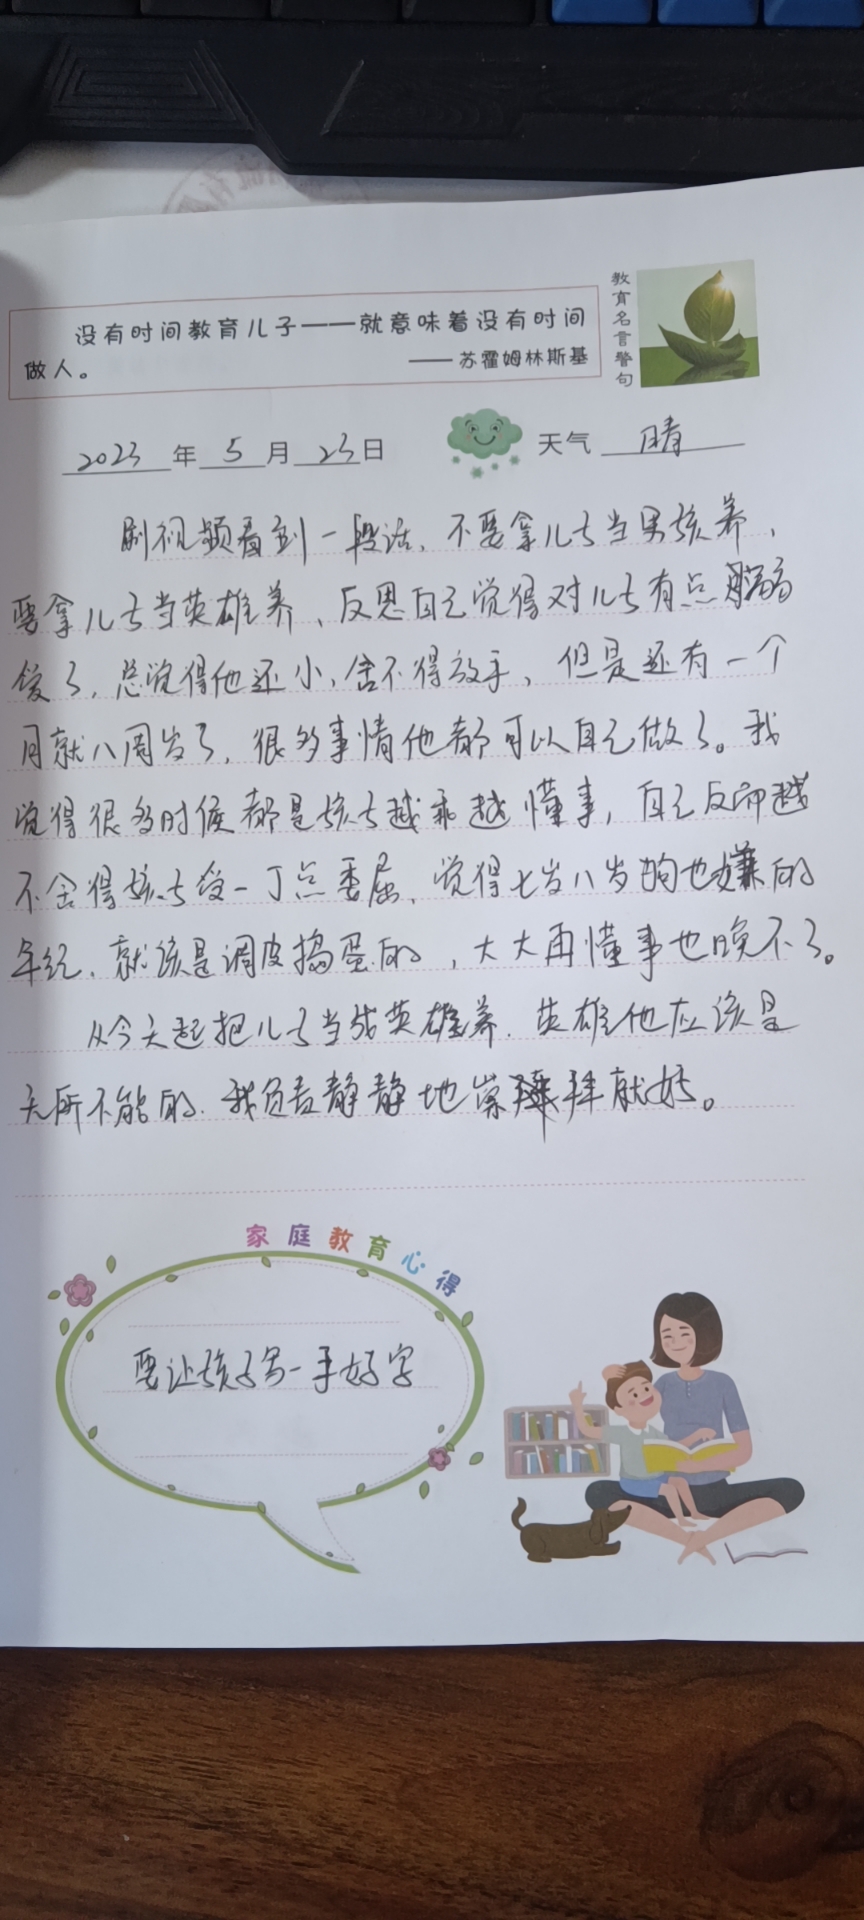 没有时间教育儿子——就意味着没有时间
做人。
——苏霍姆林斯基
教育名言警句
2023年5月23日 天气 晴
刷视频看到一段话，不要拿儿子当男孩养，
要拿儿子当英雄养，反思自己觉得对儿子有点溺
爱了，总觉得他还小，舍不得放手，但是还有一个
月就八周岁了，很多事情他都可以自己做了。我
觉得很多时候都是孩子越乖越懂事，自己反而越
不舍得孩子受一丁点委屈，觉得七岁八岁狗也嫌的
年纪，就该是调皮捣蛋的，大大再懂事也晚不了。
从今天起把儿子当成英雄养，英雄他应该是
无所不能的，我负责静静地崇拜就好。
家庭教育心得
要让孩子写一手好字